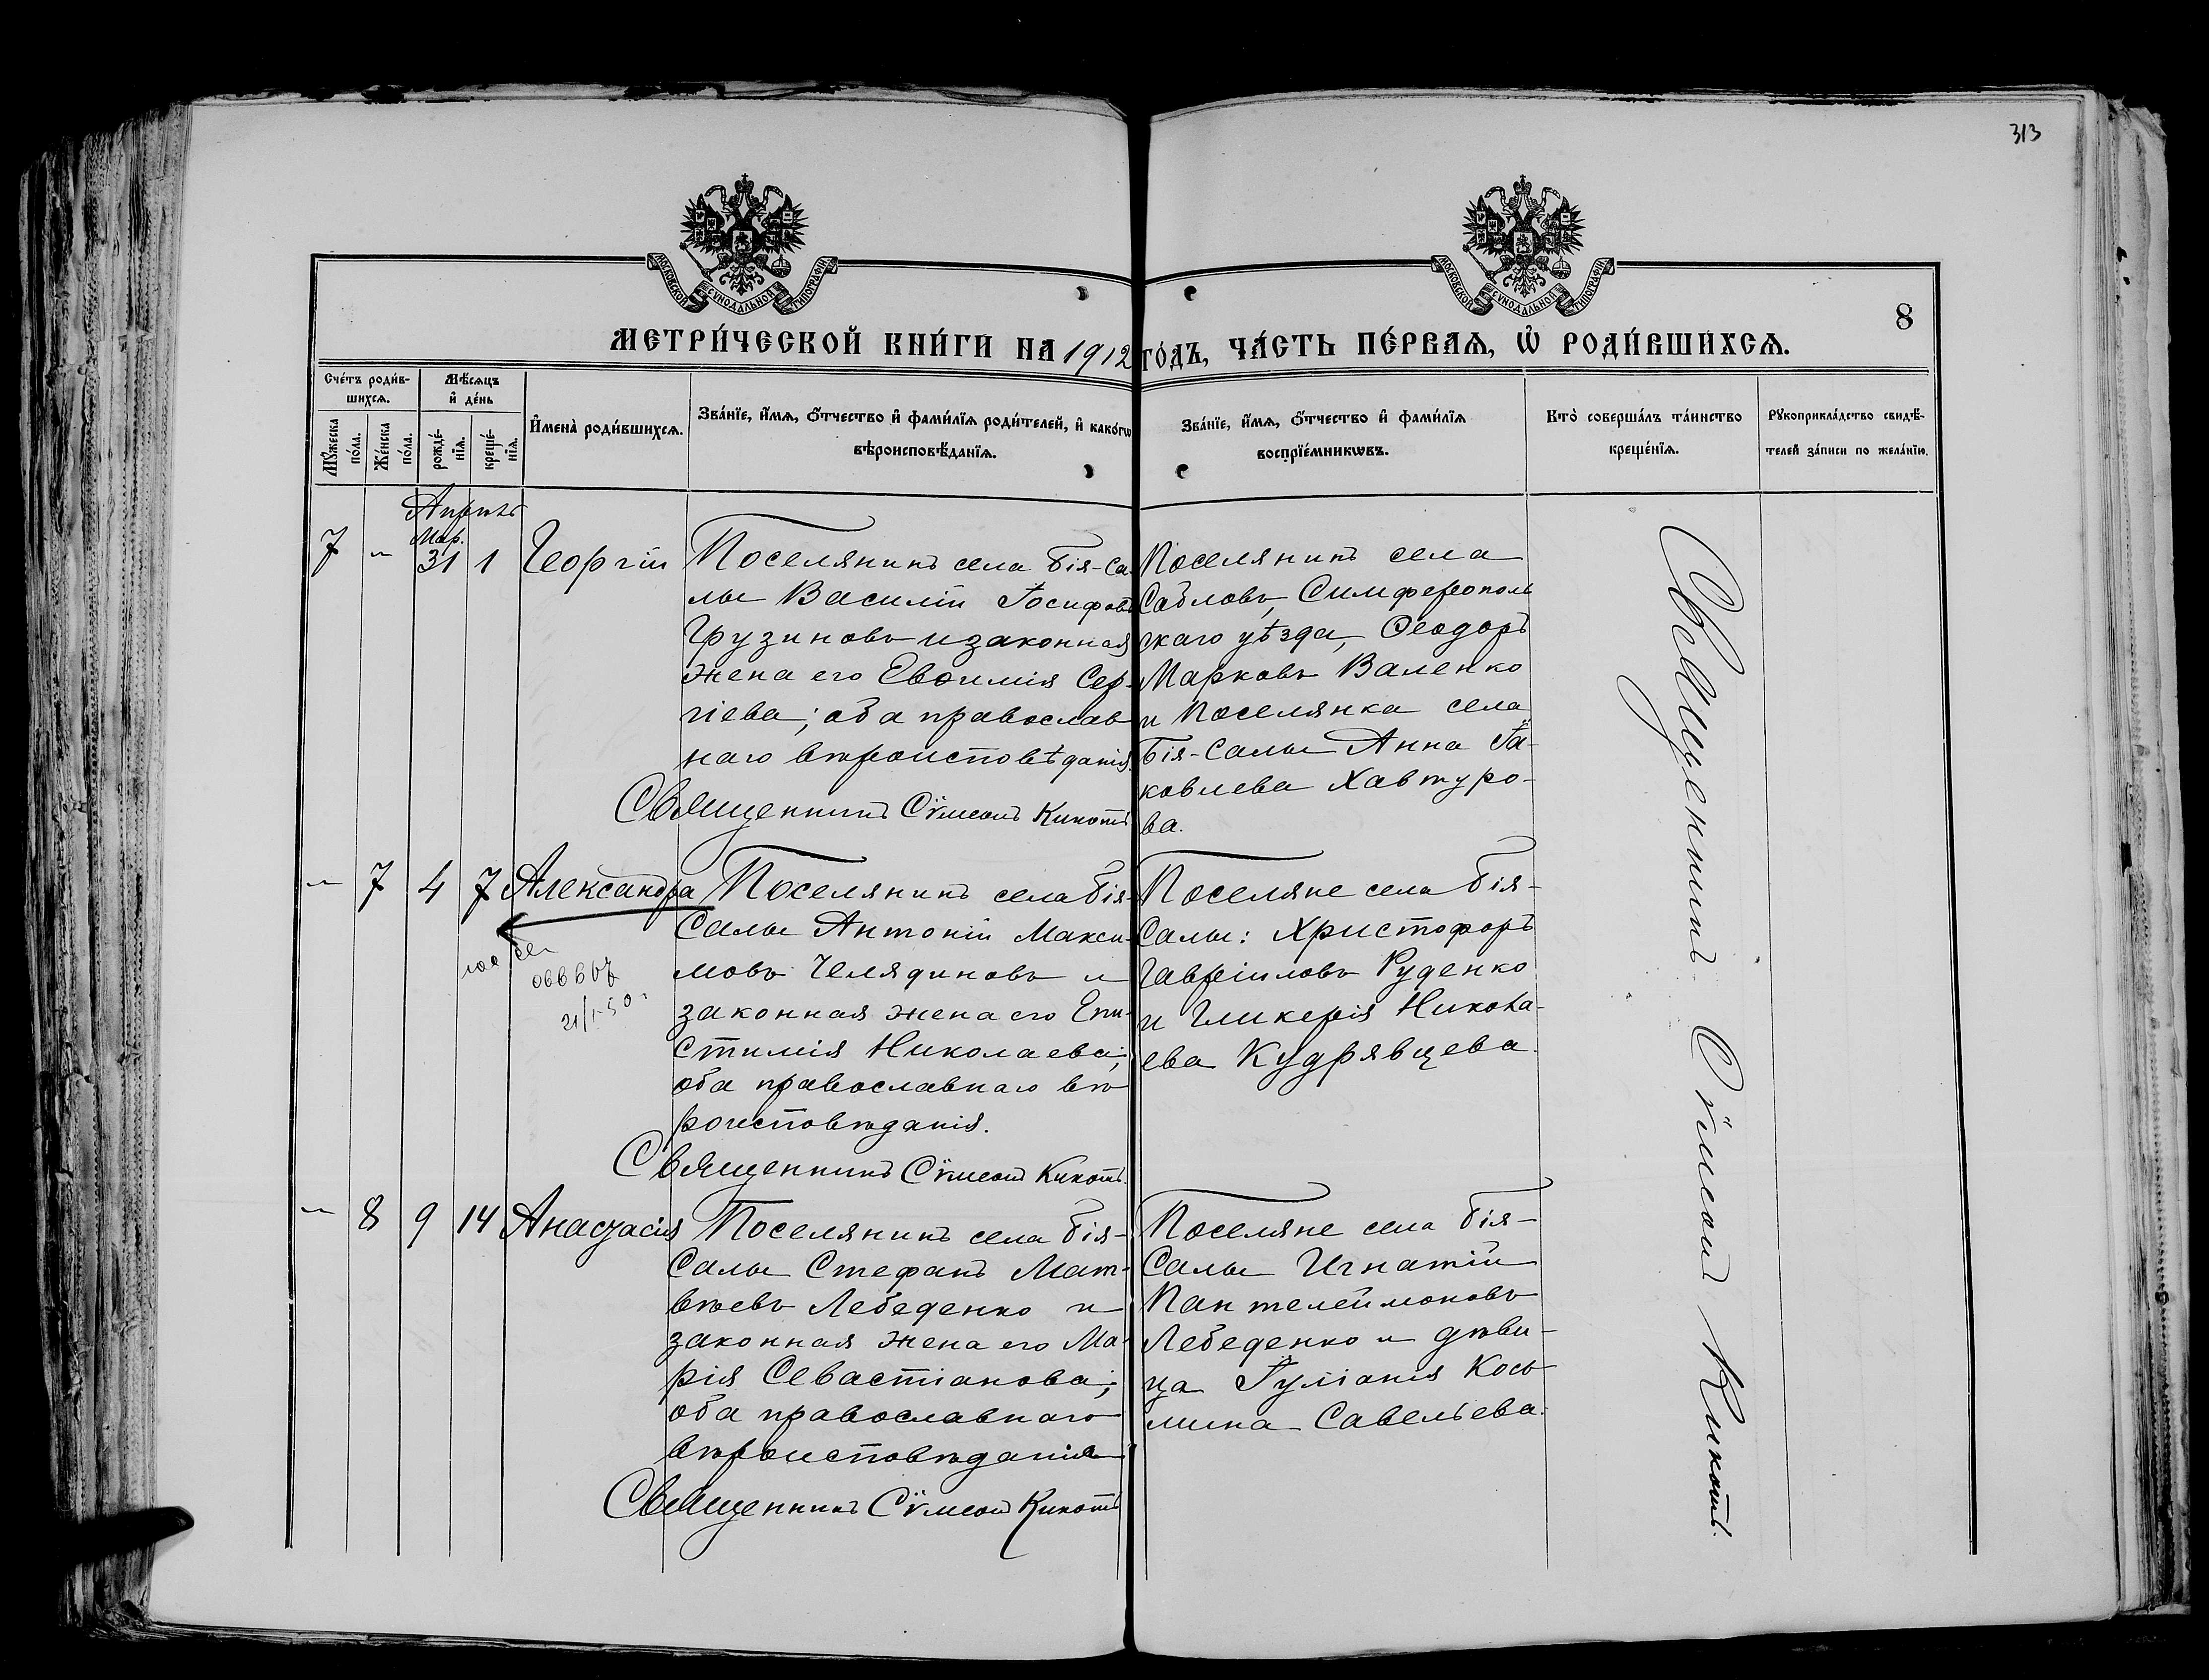 313
МОСКОВСКОЙ СѴНОДАЛЬНОЙ ТИПОГРАФІИ
МОСКОВСКОЙ СѴНОДАЛЬНОЙ ТИПОГРАФІИ
8
МЕТРИ́ЧЕСКОЙ КНИ́ГИ НА 1912 ГО́ДЪ, ЧА́СТЬ ПЕ́РВАѦ, Ѡ҆ РОДИ́ВШИХСѦ.
Сче́тъ роди́в-
шихсѧ.
Мꙋ́жеска по́ла.
Же́нска по́ла.
Мѣ́сѧцъ
и҆ де́нь
рожде́-
нїѧ.
креще́-
нїѧ.
И҆мена̀ роди́вшихсѧ.
Зва́нїе, и҆́мѧ, ѻ҆́тчество и҆ фами́лїѧ роди́телей, и҆ како́гѡ
вѣроисповѣ́данїѧ.
Зва́нїе, и҆́мѧ, ѻ҆́тчество и҆ фами́лїѧ
воспрїе́мникѡвъ.
Кто̀ соверша́лъ та́инство
креще́нїѧ.
Рꙋкоприкла́дство свидѣ́-
телей за́писи по жела́нїю.
Апрѣль
Мар.
7 – 31 1 Георгій
Поселянинъ села Бія-Са-
лы Василій Іосифовъ
Грузиновъ и законная
жена его Евѳимія Сер-
гіева; оба православ
наго вѣроисповѣданія.
Священникъ Сѵмеонъ Кикоть
Поселянинъ села
Сабловъ, Симферополь
скаго уѣзда, Ѳеодоръ
Марковъ Валенко
и Поселянка села
Бія-Салы Анна Іа-
ковлева Хавтуро-
ва.
– 7 4 7 Александра
21/I-50 г
Поселянинъ села Бія-
Салы Антоній Макси-
мовъ Челядиновъ и
законная жена его Епи-
стимія Николаева;
оба православнаго вѣ
роисповѣданія.
Священникъ Сѵмеонъ Кикоть.
Поселяне села Бія-
Салы: Христофоръ
Гавріиловъ Руденко
и Гликерія Никола-
ева Кудрявцева.
– 8 9 14 Анастасія
Поселянинъ села Бія-
Салы Стефанъ Мат-
вѣевъ Лебеденко и
законная жена его Ма-
рія Севастіанова;
оба православнаго
вѣроисповѣданія
Священникъ Сѵмеонъ Кикоть
Поселяне села Бія-
Салы Игнатій
Пантелеймоновъ
Лебеденко и дѣви-
ца Іуліанія Кось
мина Савельева.
Священникъ Сѵмеонъ Кикоть.